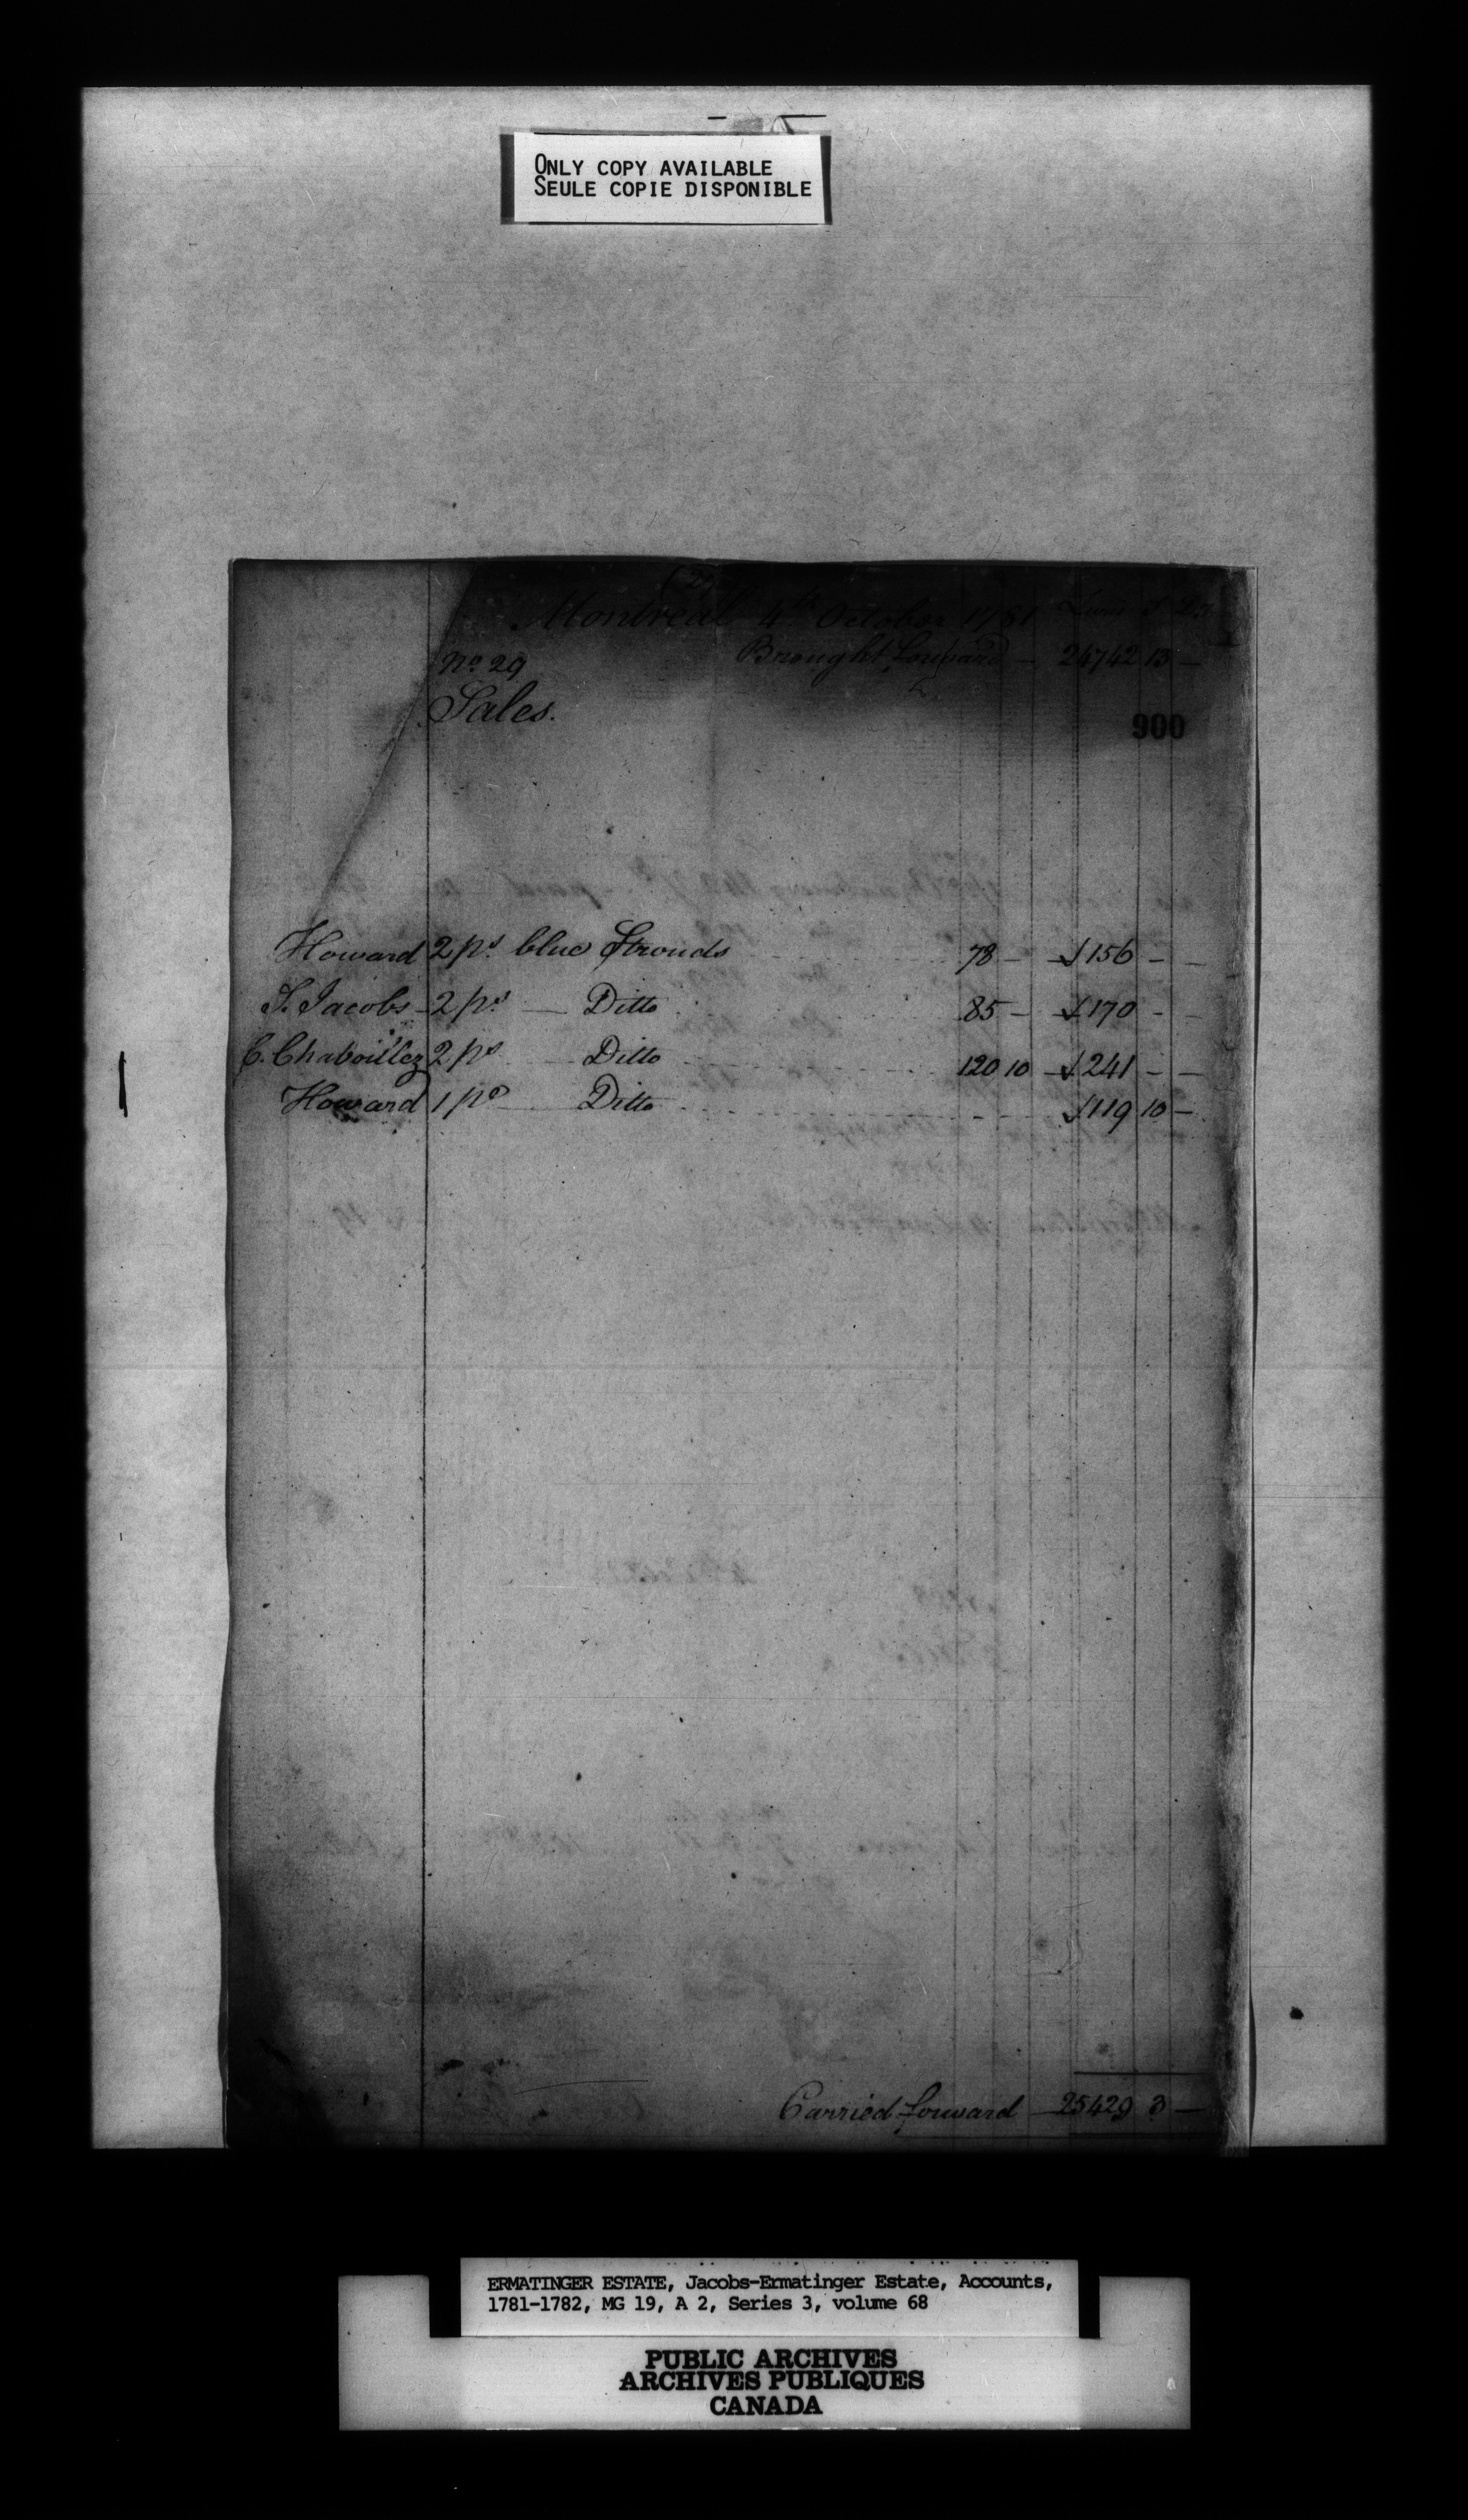 ONLY COPY AVAILABLE
SEULE COPIE DISPONIBLE
Montreal 4th October 1781
Brought forward — 24742 13 —
No 29
Sales.
900
Howard 2 ps. blue Strouds 78 — √156 — —
S. Jacobs — 2 ps. — Ditto 85 — √170 — —
C. Chaboillez 2 ps — Ditto 120 10 — √241 — —
Howard 1 ps — Ditto √119 10 —
Carried forward — 25429 3 —
ERMATINGER ESTATE, Jacobs-Ermatinger Estate, Accounts,
1781-1782, MG 19, A 2, Series 3, volume 68
PUBLIC ARCHIVES
ARCHIVES PUBLIQUES
CANADA